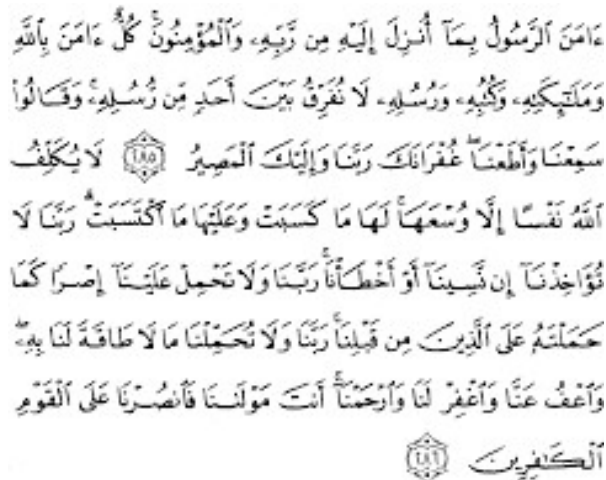 ءَامَنَ ٱلرَّسُولُ بِمَآ أُنزِلَ إِلَيْهِ مِن رَّبِّهِۦ وَٱلْمُؤْمِنُونَۚ كُلٌّ ءَامَنَ بِٱللَّهِ
وَمَلَٰٓئِكَتِهِۦ وَكُتُبِهِۦ وَرُسُلِهِۦ لَا نُفَرِّقُ بَيْنَ أَحَدٍ مِّن رُّسُلِهِۦۚ وَقَالُوا۟
سَمِعْنَا وَأَطَعْنَاۖ غُفْرَانَكَ رَبَّنَا وَإِلَيْكَ ٱلْمَصِيرُ ٢٨٥ لَا يُكَلِّفُ
ٱللَّهُ نَفْسًا إِلَّا وُسْعَهَاۚ لَهَا مَا كَسَبَتْ وَعَلَيْهَا مَا ٱكْتَسَبَتْۗ رَبَّنَا لَا
تُؤَاخِذْنَآ إِن نَّسِينَآ أَوْ أَخْطَأْنَاۚ رَبَّنَا وَلَا تَحْمِلْ عَلَيْنَآ إِصْرًا كَمَا
حَمَلْتَهُۥ عَلَى ٱلَّذِينَ مِن قَبْلِنَاۚ رَبَّنَا وَلَا تُحَمِّلْنَا مَا لَا طَاقَةَ لَنَا بِهِۦۖ
وَٱعْفُ عَنَّا وَٱغْفِرْ لَنَا وَٱرْحَمْنَآۚ أَنتَ مَوْلَىٰنَا فَٱنصُرْنَا عَلَى ٱلْقَوْمِ
ٱلْكَٰفِرِينَ ٢٨٦